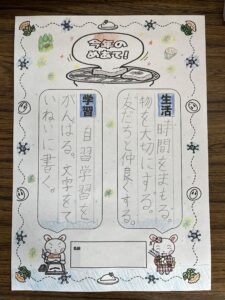 今年の
めあて!
生活
時間をまもる。
物を大切にする。
友だちと仲良くする。
学習
自習学習を
がんばる。文字をて
いねいに書く。